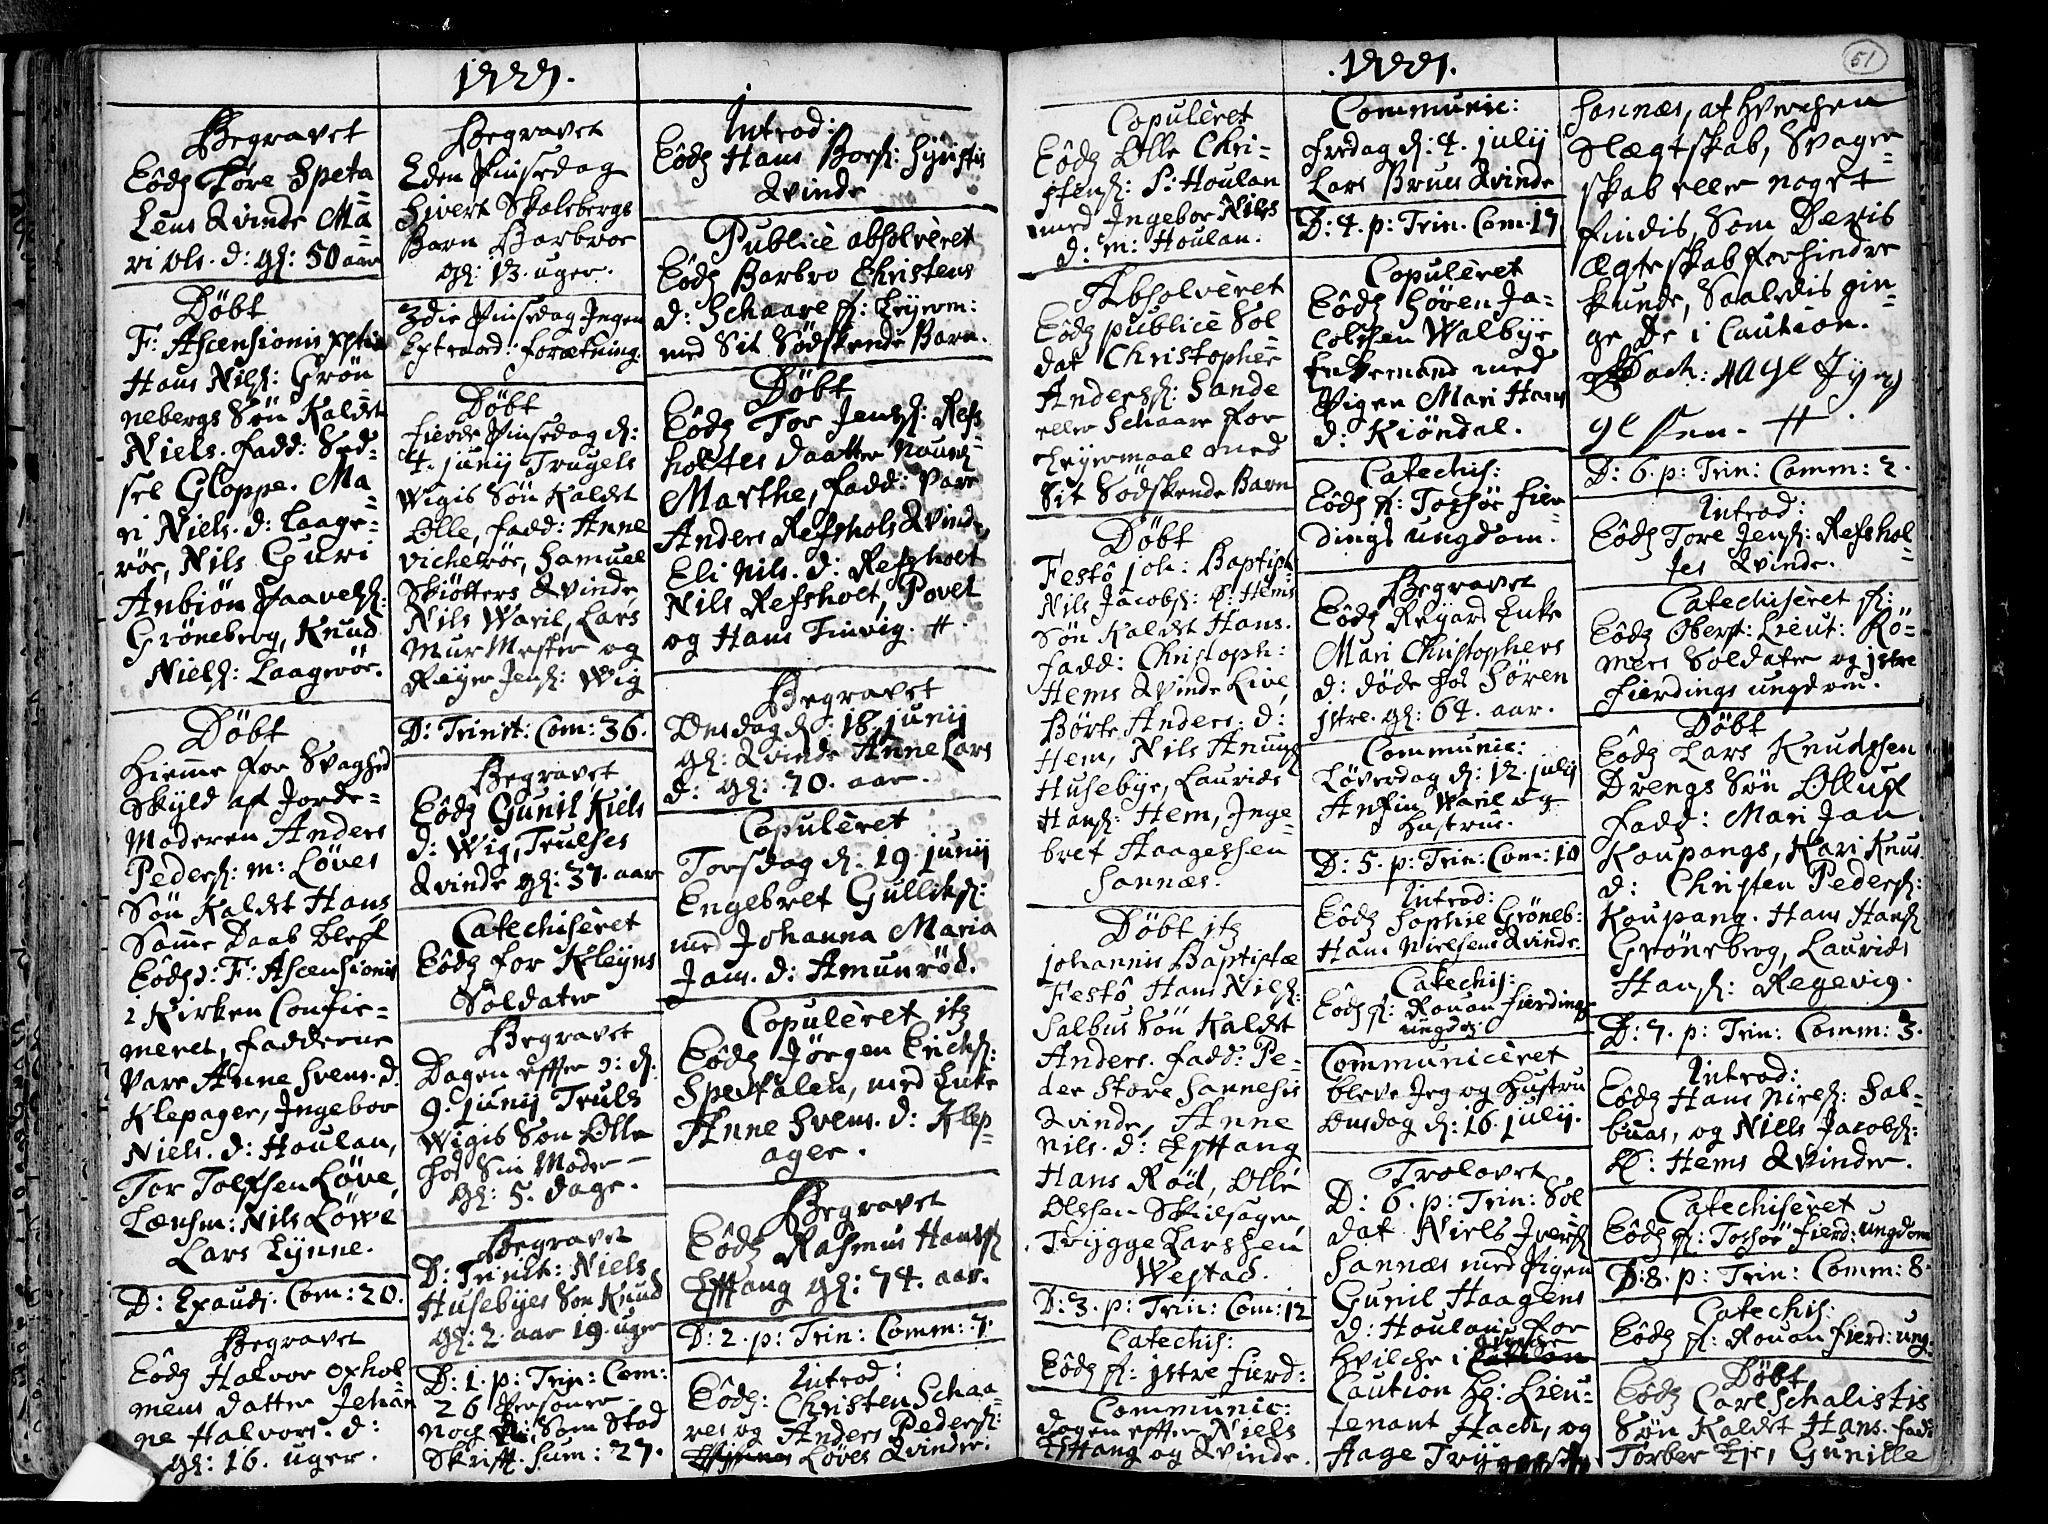 1727.
Begravet
Eôdẽ Tore Speta
Lens Qvinde Ma
ri Ols. d: gl: 50 aar
Døbt
F: Ascensionis
Hans Nilss: Grøn
nebergs Søn Kaldet
Niels. fadd: Sed-
sel Gloppe. Ma-
ri Niels. d: Laage-
røe, Nils Guri
Anbiøn Paavelss:
Grøneberg, Knud
Nielss: Laagerøe.
Døbt
Hiemme for Svaghed
Skyld af Jorde-
Moderen Anders
Pederss: m: Løves
Søn Kaldet Hans
Samme Daab blef
Eôdẽ d: F: Ascensionis
i Kirken Confir-
meret, Fadderne
Vare Anne Svens. d:
Klepager, Ingebor
Niels. d: Houlan,
Tor Tolfsen Løve,
Lænsm: Nils Løwe
Lars Lynne.
D: Exaudi. Com: 20.
Begravet
Eôdẽ Halvor Oxhol
mens datter Johan
ne Halvors. d:
gl: 16. uger.
Begravet
2den Pinsedag
Sivert Skalebergs
Barn Barbroe
gl: 13. uger.
3die Pinsedag Ingen
Extraord: foretning.
Døbt
fierde Pinsedag d:
4. junij Trugels
Wigis Søn Kaldet
Olle, fadd: Anne
Vicherøe, Samuel
Skiøtters Qvinde
Nils Waril, Lars
Mur Mester og
Reyer Jenss: Wig
D: Trinit: Com: 36.
Begravet
Eôdẽ Gunil Niels
d: Wig, Trulses
Qvinde gl: 37. aar
Catechiseret
Eôdẽ for Kleyns
Soldater
Begravet
Dagen effter d:
9. junij Truls
Wigis Søn Olle
hos Sin Moder
gl: 5. dage.
Begravet
D: Trinit: Niels
Husebyes Søn Knud
gl: 2. aar 19. uger
D: 1. p: Trin: Com:
26 Personer
noch Som Stod
Skrifft. Sum: 27.
Introd:
Eôdẽ Hans Boess: Hyristis
Qvinde
Publicè absolveret
Eôdẽ Barbro Christens
d: Schaare f: Leyerm:
med Sit Sødskende Barn.
Døbt
Eôdẽ Tor Jenss: Refs
holtes Daatter
Marthe, fadd: Vare
Anders Refshols Qvinde,
Eli Nils. d: Refsholt
Nils Refsholt, Povel
og Hans Tinvig.
Begravet
Onsdag d: 18 junij
gl: Qvinde Anne Lars
d: gl: 70. aar.
Copuleret
Torsdag d. 19. junij
Engebret Gulliks:
med Johanna Maria
Jans. d: Amunrød.
Copuleret
Eôdẽ Jørgen Erichss:
Spetalen, med Enke
Anne Svens. d: Klep-
ager.
Begravet
Eôdẽ Rasmus Hanss
Efftang gl: 74. aar.
D: 2. p: Trin: Comm: 7.
Introd:
Eôdẽ: Christen Schaa
res og Anders Pederss:
Løves Qvinder.
.1727.
51
Copuleret
Eôdẽ Olle Chri-
stenss: S: Houlan
med Ingebor Niels
d: m: Houlan.
Absolveret
Eôdẽ publicè Sol
dat Christopher
Anderss: Sande
eller Schaare for
Leyermaal med
Sit Sødskende Barn
Døbt
Festô Joh: Baptist
Nils Jacobss: Hems
Søn Kaldet Hans.
Fadd: Christoph:
Hems Qvinde Live,
Børte Anders. d:
Hem, Nils Anunss
Husebye, Laurids
Hanss: Hem, Inge-
bret Haagessen
Sannæs.
Døbt
Johannis Baptistæ
Festô Hans Nilss:
Salbus Søn Kaldet
Anders. fadd: Pe-
der Store Sannesis
Qvinde, Anne
Nils. d: Efftang
Hans Rød, Olle
Olssen Skielsagen
Trygge Larssen
Westad.
D: 3. p: Trin: Com: 12
Catechis:
Eôdẽ f: ystre fierd:
Communic:
dagen effter Niels
Efftang og Qvinde.
Communic:
fredag d: 4. julij
Lars Brues Qvinde
D: 4. p: Trin. Com. 17
Copuleret
Eôdẽ Søren Ja-
cobsen Walbye
Enkemand med
Pigen Mari Hans
d: Kiøndal.
Catechis:
Eôdẽ f: Toesøe fier-
dings ungdom.
Begravet
Eôdẽ Reyars Enke
Mari Christophers
d: døde hos Søren
ystre. gl: 64. aar.
Communic:
Løverdag d: 12. julij
Anfin Waril og
Hustrue.
D: 5. p: Trin: Com: 10
Introd:
Eôdẽ Sophie Grøneb:
Hans Nielsens Qvinde.
Catechis:
Eôdẽ f: Rouan fierdings
ungd:
Communiceret
bleve Jeg og Hustru
Onsdag d: 16. julij.
Trolovet
D: 6. p: Trin: Sol
dat Niels Iverss
Sannæs med Pigen
Gunil Haagens
d: Houlan, for
hvilche i
Caution Hr: Lieu-
tenant Hach, og
Aage Tryggess
Sannæs, at hverchen
Slegtskab, Svager-
skab eller noget
findis, Som Deris
Ægteskab forhindre
Kunde, Saaledis gin-
ge De i Caution.
D: 6. p: Trin: Comm: 2.
Introd:
Eôdẽ Tore Jenss: Refshol-
tes Qvinde.
Catechiseret f:
Eôdẽ Oberst: Lieut: Rö-
mers Soldater og ystre
fierdings ungdom.
Døbt
Eôdẽ Lars Knudssen
Drengs Søn Olluf
fadd: Mari Jan
Koupangs, Kari Knus.
d: Christen Pederss:
Koupang. Hans Hanss
Grøneberg, Laurids
Hanss: Regevig.
D: 7. p: Trin: Comm: 3.
Introd:
Eôdẽ Hans Nielss: Sal-
buas, og Niels Jacobss:
Hems Qvinder.
Catechiseret
Eôdẽ f: Toesøe fierd: ungdom
D: 8. p: Trin: Comm: 8.
Catechis:
Eôdẽ f: Rouan fierd: ung.
Døbt
Eôdẽ Carl Schalistis
Søn Kaldet Hans. fad:
Torber Lie, Gunille